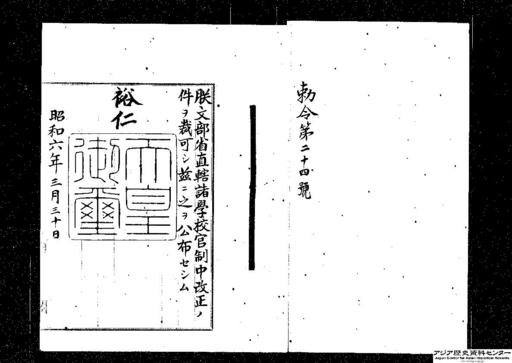 勅令第二十四號
朕文部省直轄諸學校官制中改正ノ
件ヲ裁可シ茲ニ之ヲ公布セシム
裕仁
天皇御璽
昭和六年三月三十日
アジア歴史資料センター
Japan Center for Asian Historical Records